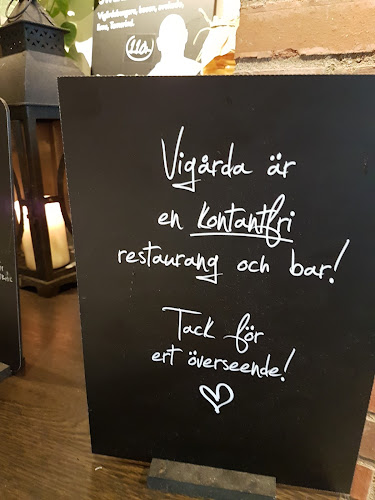 Vigårda är
en kontantfri
restaurang och bar!
Tack för
ert överseende!